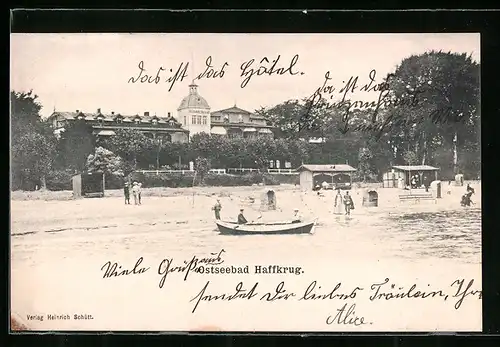 das ist das Hôtel.
da ist das
Viele Grüße aus
Ostseebad Haffkrug.
sendet Dir liebes Fräulein, Ihre
Alice.
Verlag Heinrich Schütt.